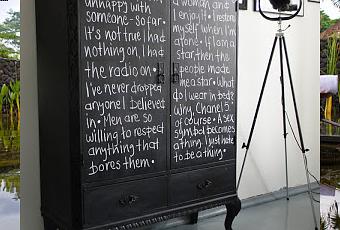 unhappy with
someone - so far.
It's not true I had
nothing on, I had
the radio on.
I've never dropped
anyone I believed
in. Men are so
willing to respect
anything that
bores them.
a woman and
I enjoy it. I restore
myself when I'm
alone. If I am a
star, then the
people made
me a star. What
do I wear in bed?
Why, Chanel 5
of course. A sex
symbol becomes
a thing, I just hate
to be a thing.